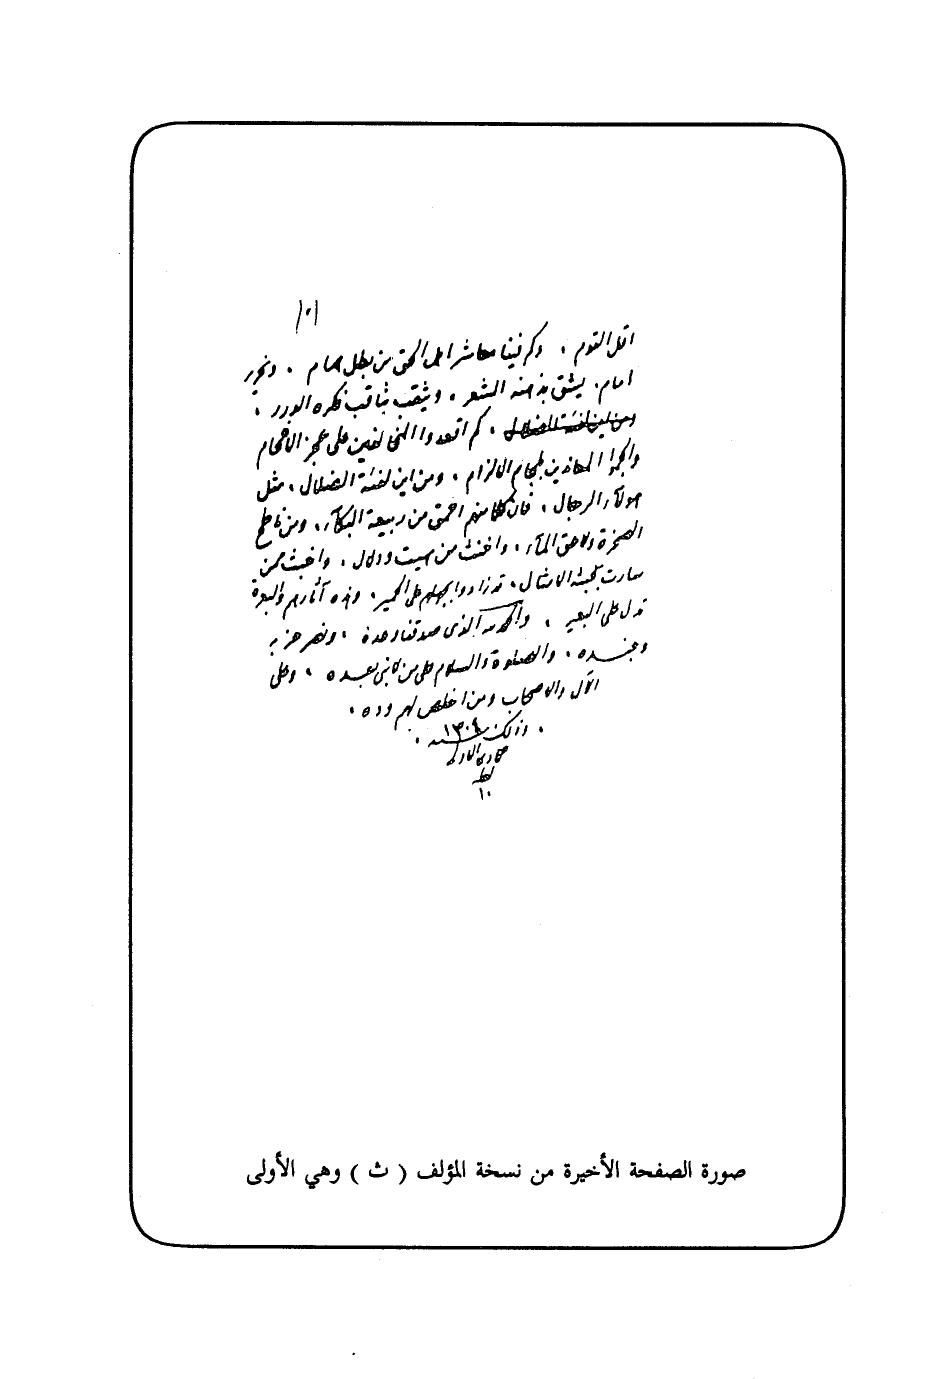 ١٠١
اقل القوم ، وكم فينا معاشر اهل الحق من بطل همام ، ونحرير
امام. يشق بذهنه الشعر ، ويثقب بثاقب فكره الدرر ،
ومن اين لفئة الضلال ، كم اقعدوا المخالفين على عجز الافحام
والجموا المعاندين بلجام الالزام ، ومن اين لفئة الضلال ، مثل
هؤلآء الرجال ، فان كلا منهم احمق من ربيعة البكآء ، ومن ناطح
الصخرة ولاعق المآء ، واخنث من هيت ودلال ، واخبث ممن
سارت بخبثه الامثال ، قد زادوا بجهلهم على الحمير ، وهذه آثارهم والبعرة
تدل على البعير ، والحمد لله الذى صدقنا وعده ، ونصر حزبه
وجنده ، والصلوة والسلام على من لا نبى بعده ، وعلى
الآل والاصحاب ومن اخلص لهم وده ،
، وذلك سنه ١٣٠٤ ،
جمادى الاول
١٠
صورة الصفحة الأخيرة من نسخة المؤلف ( ث ) وهي الأولى